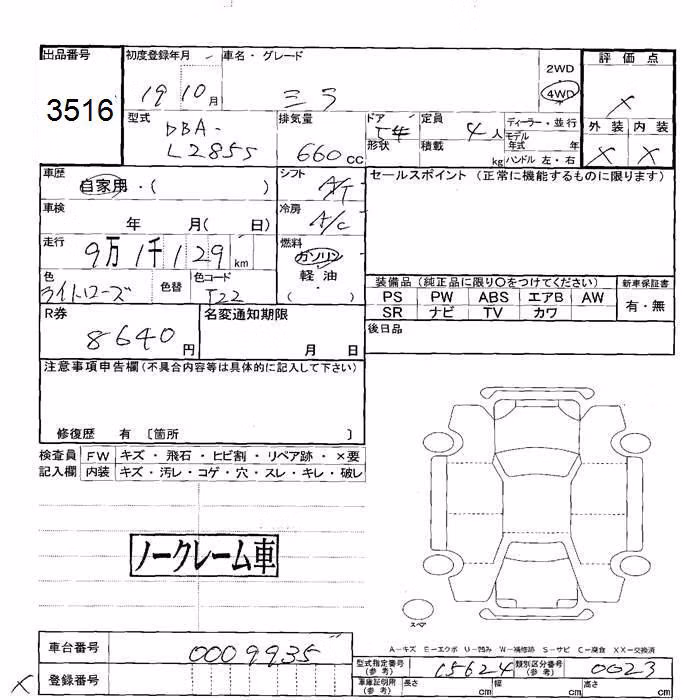 出品番号
3516
初度登録年月
19 10 月
車名・グレード
ミラ
2WD
4WD
評価点
X
外装 内装
X X
型式
DBA-
L285S
排気量
660 cc
ドア
形状
定員
4 人
積載
kg
ディーラー・並行
モデル
年式 年
ハンドル 左・右
車歴
自家用・( )
シフト
A/T
セールスポイント (正常に機能するものに限ります)
車検
年 月( 日)
冷房
A/C
走行
9万1千129 km
燃料
ガソリン
軽・油
( )
色
ライトローズ
色替
色コード
T22
装備品 (純正品に限り〇をつけてください)
PS PW ABS エアB AW
SR ナビ TV カワ
新車保証書
有・無
R券
8640 円
名変通知期限
月 日
後日品
注意事項申告欄 (不具合内容等は具体的に記入して下さい)
修復歴 有 〔箇所 〕
検査員
記入欄
FW キズ・飛石・ヒビ割・リペア跡・×要
内装 キズ・汚レ・コゲ・穴・スレ・キレ・破レ
ノークレーム車
スペア
A-キズ E-エクボ U-凹み W-補修跡 S-サビ C-腐食 XX-交換済
車台番号
0009935
登録番号
X
型式指定番号
(参考)
15624
類別区分番号
(参考)
0023
車庫証明用
(参考)
長さ cm 幅 cm 高さ cm